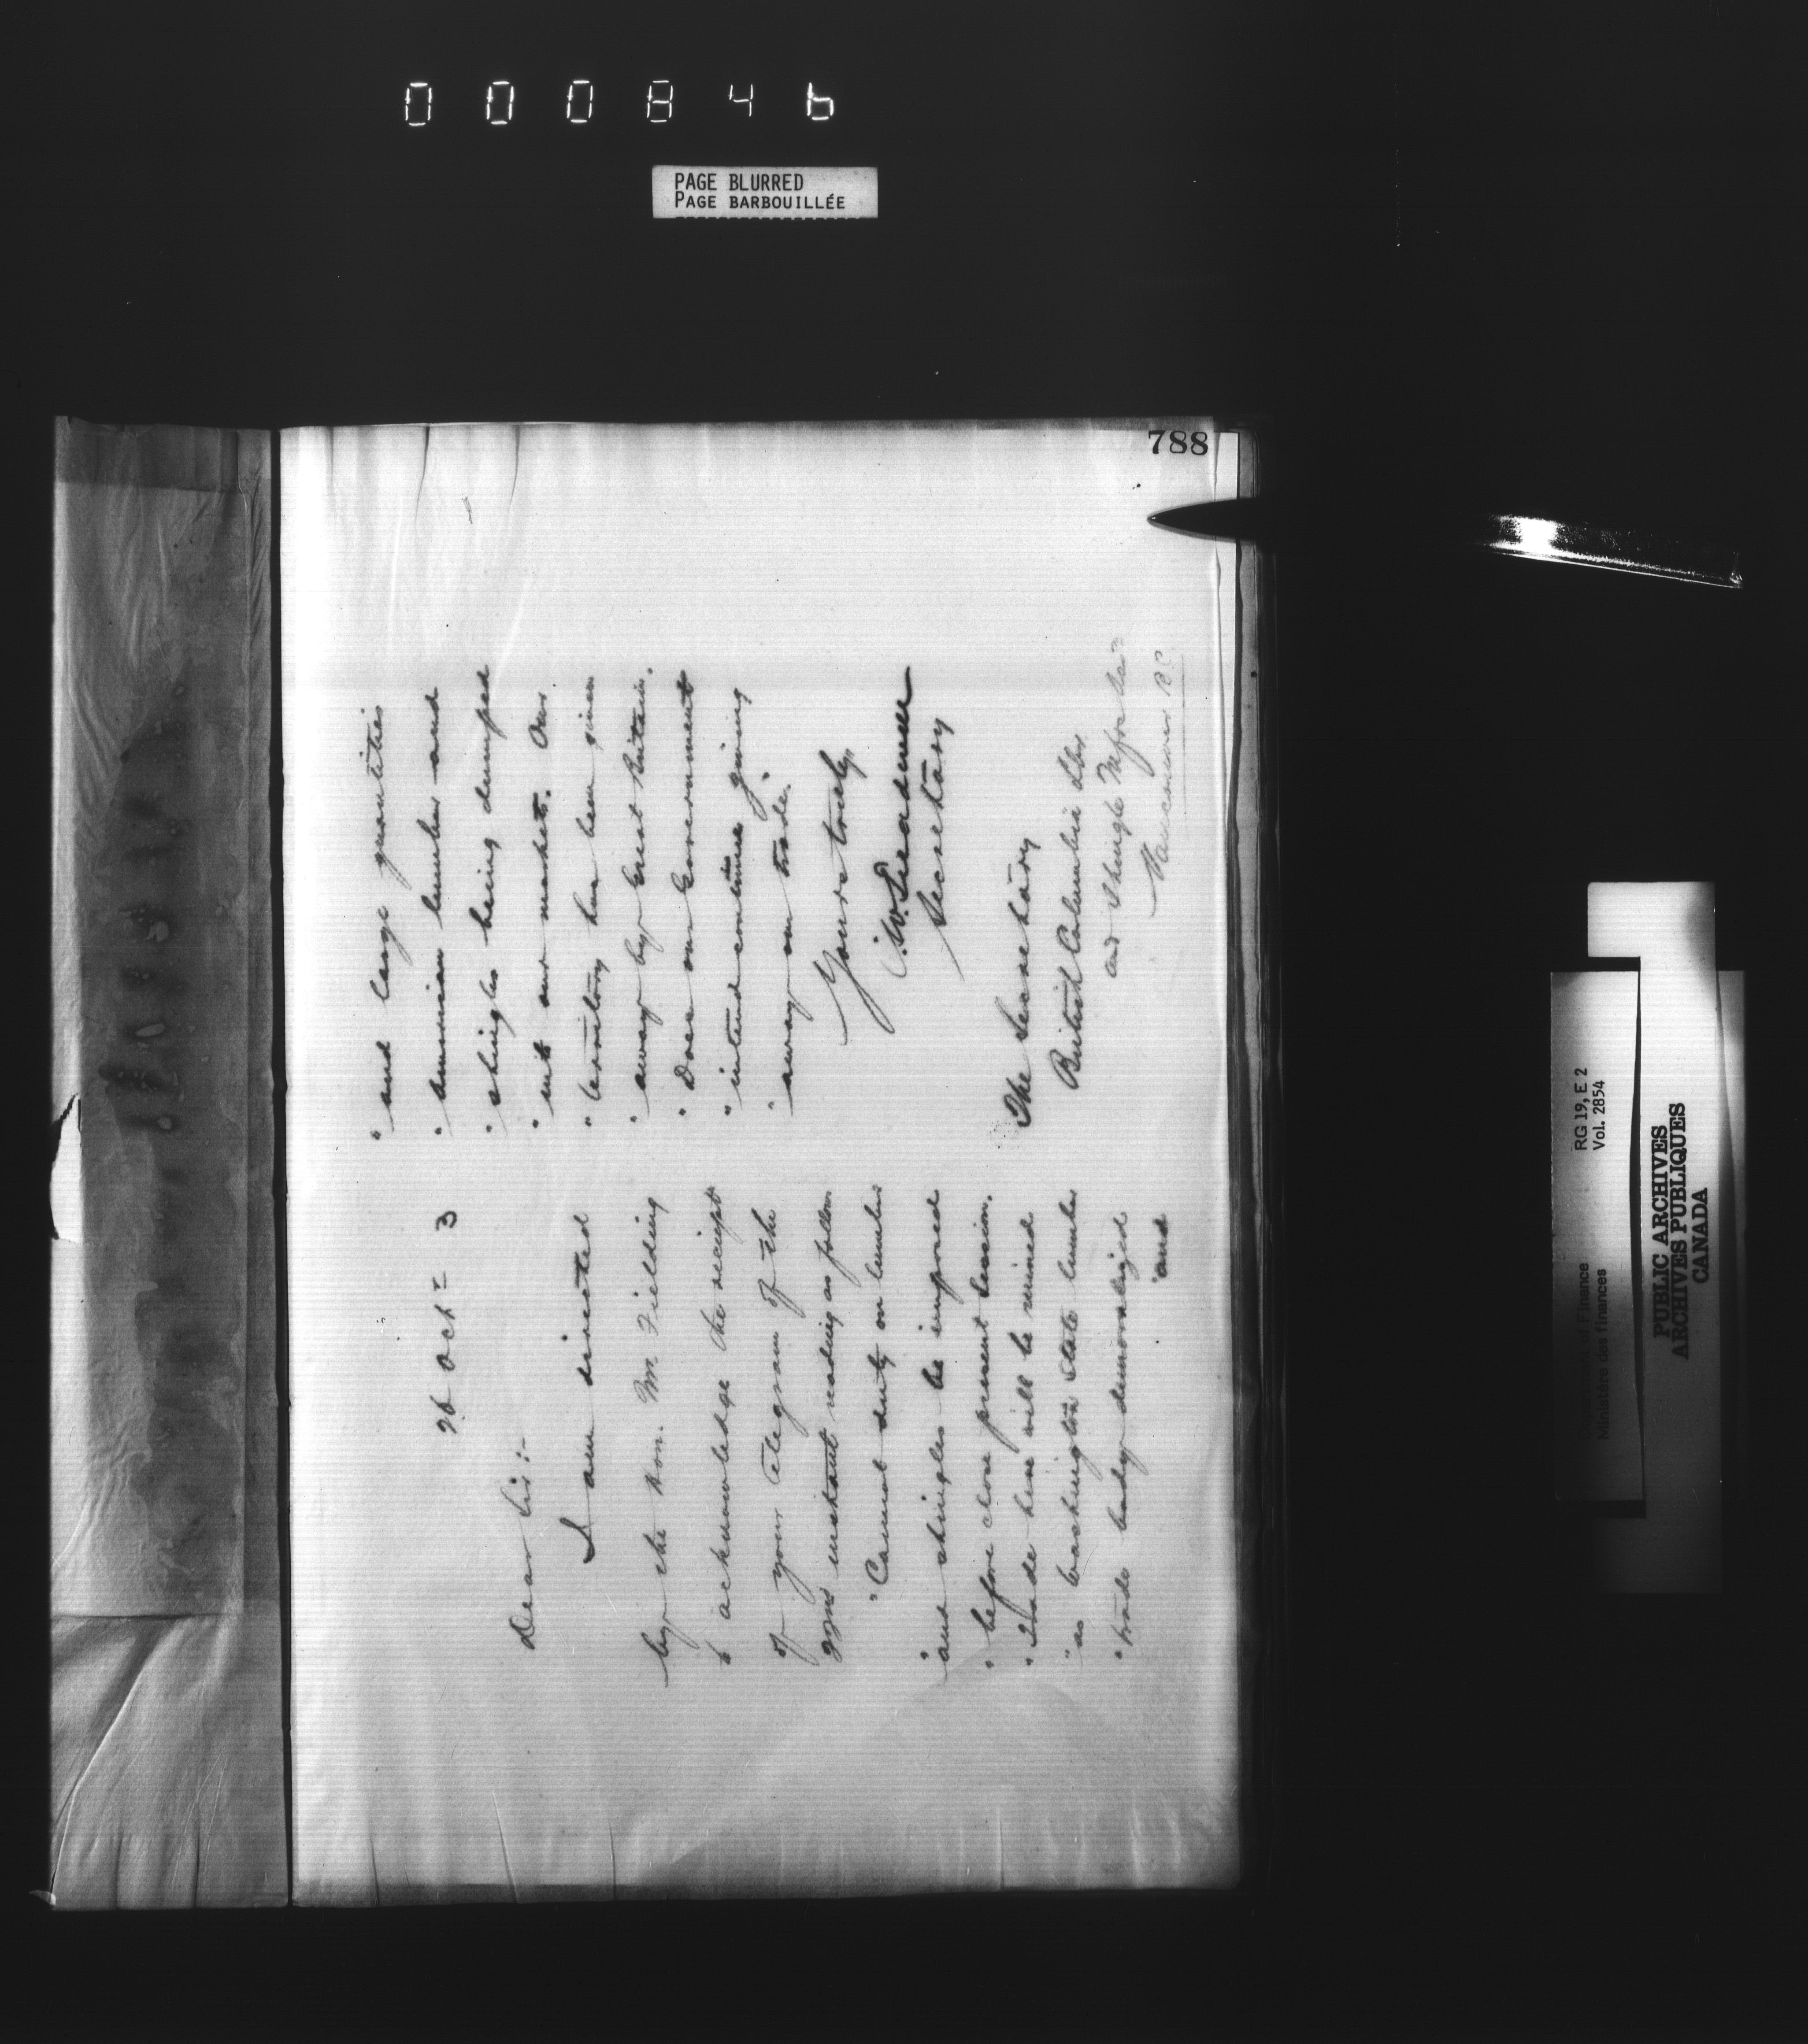 000846
PAGE BLURRED
PAGE BARBOUILLÉE
788
26 Oct = 3
Dear Sir:-
I am directed
by the Hon. Mr. Fielding
to acknowledge the receipt
of your telegram of the
instant reading as follows
"Cannot duty on lumber
"and shingles be imposed
"before close present Session.
"Trade here will be ruined
"as Washington State lumber
"trade badly demoralized
"and
"and large quantities
"American lumber and
"shingles being dumped
"into our markets. Our
"territory has been given
"away by Great Britain.
"Does our Government
"intend continue giving
"away our trade."
Yours truly,
Secretary
The Secretary
British Columbia Lbr
and Shingle Mfrs
Vancouver B.C.
RG 19, E 2
Vol. 2854
Department of Finance
Ministère des finances
PUBLIC ARCHIVES
ARCHIVES PUBLIQUES
CANADA